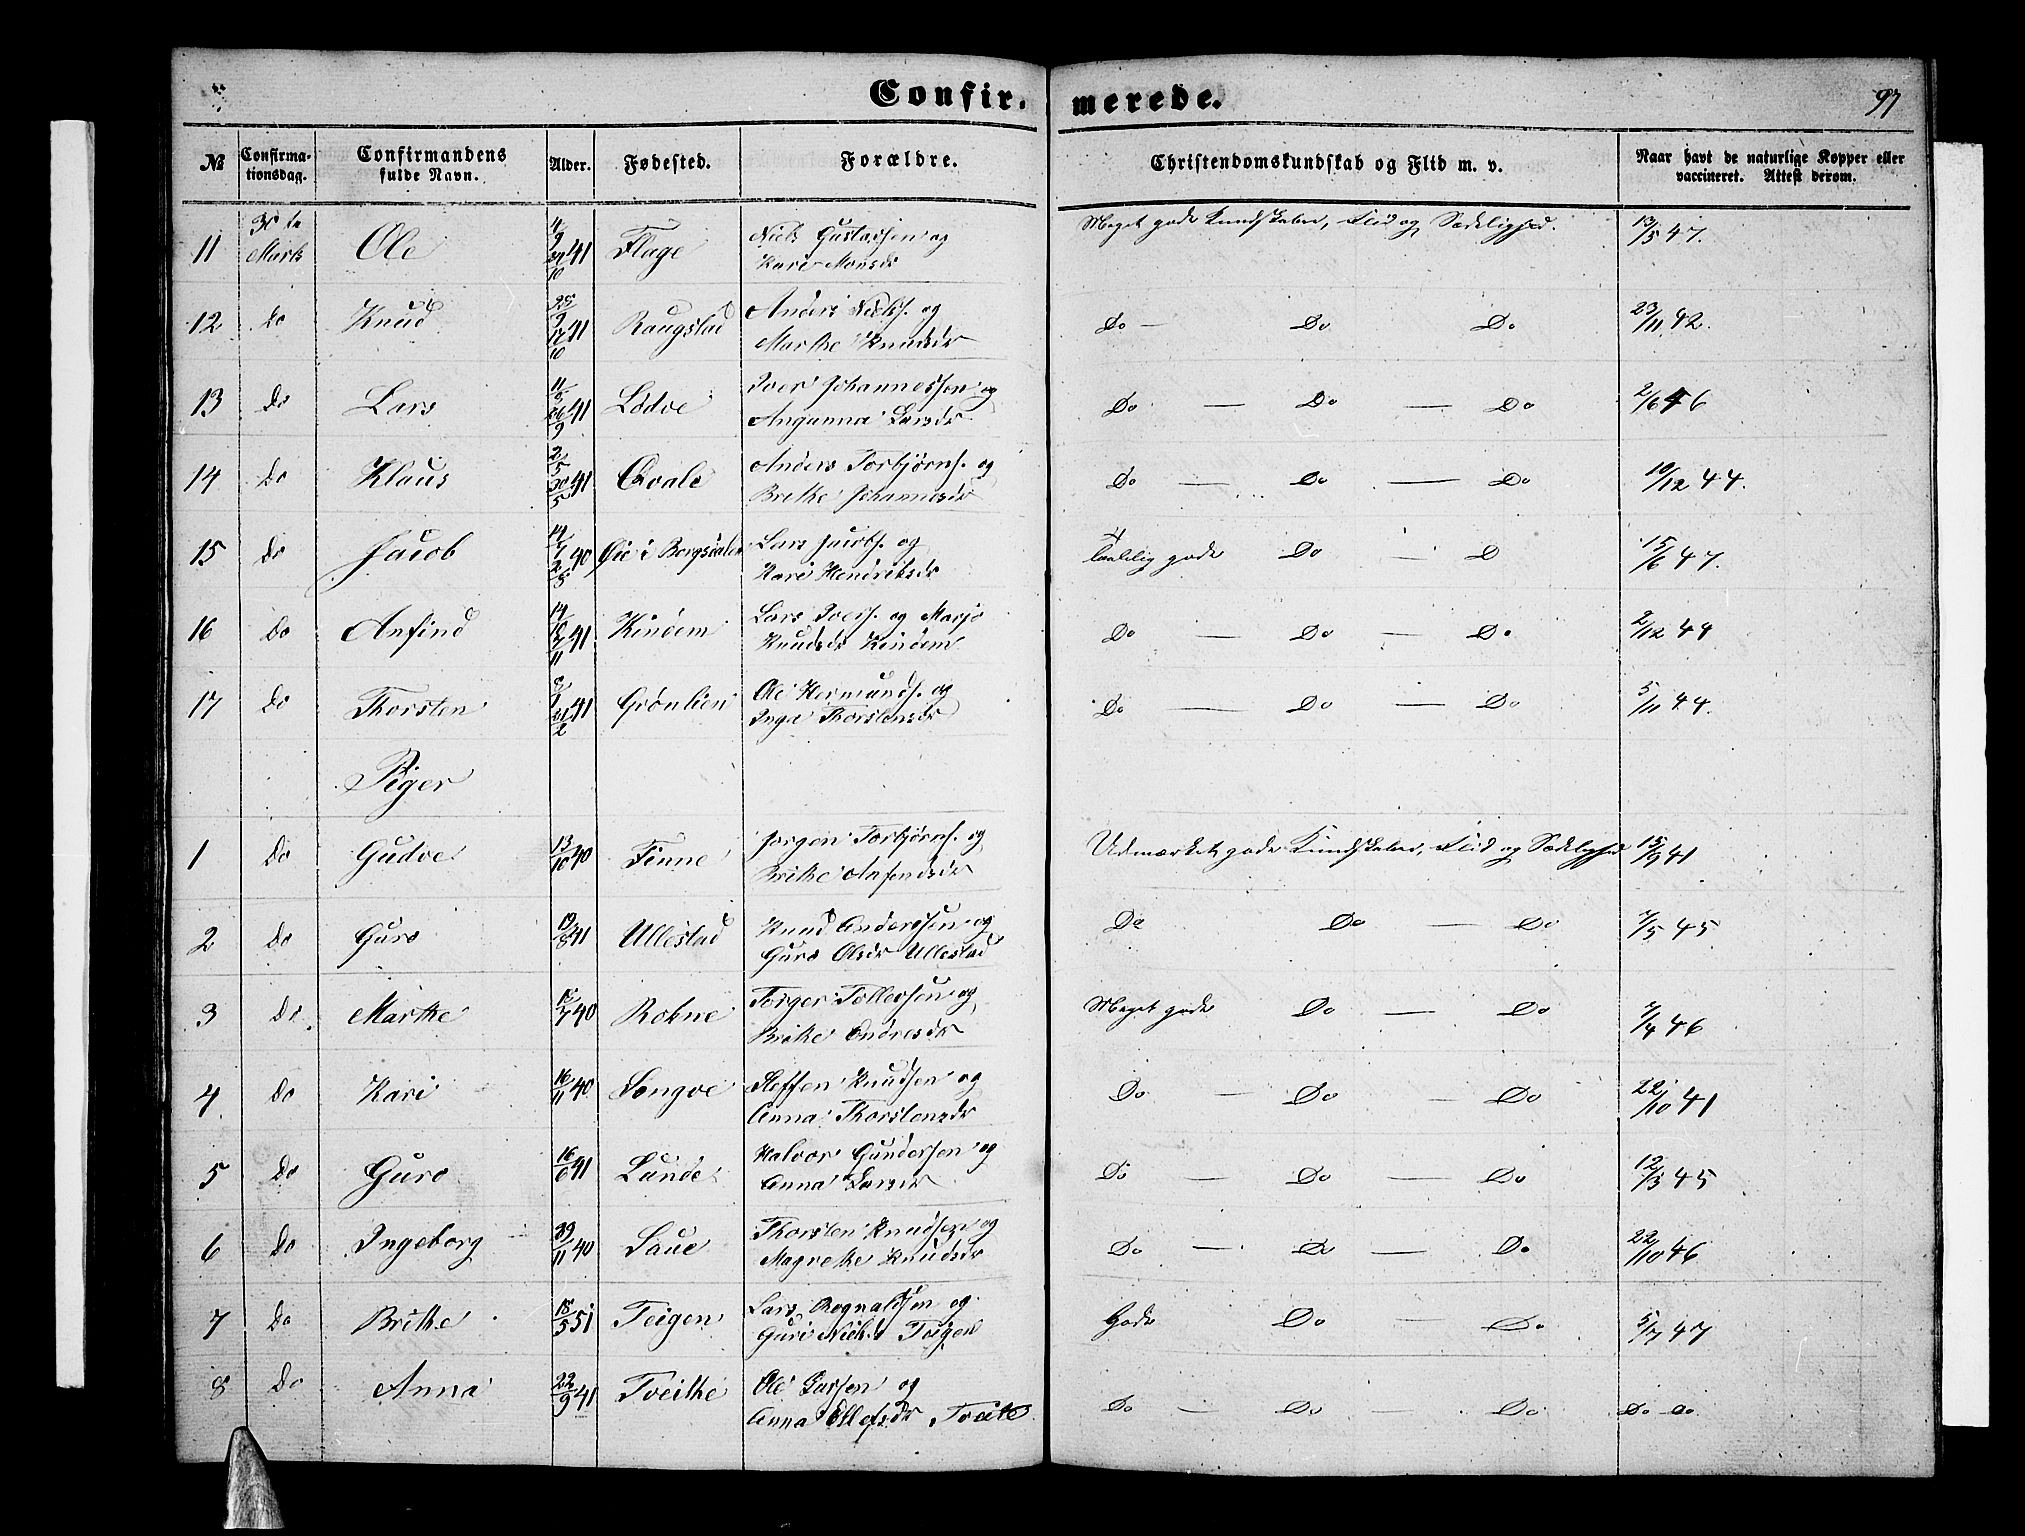 Confirmerede.
97
№ Confirmationsdag. Confirmandens fulde Navn. Alder. Fødested. Forældre. Christendomskundskab og Flid m. v. Naar havt de naturlige Kopper eller vaccineret. Attest derom.
11 Marts Ole 41 Flage Niels Gustafsen og Kari Monsdr Meget gode Kundskaber, Flid og Sædelighed. 13/5 47.
12 Do Knud 41 Raugstad Anders Nielss. og Marthe Knudsdr Do — Do Do 23/11 42.
13 Do Lars 41 Lødve Iver Johannessen og Anganna Larsdr Do — Do — Do 2/6 46
14 Do Klaus 41 Qvale Anders Torbjørns. og Brithe Johannesdr Do — Do — Do 10/12 44.
15 Do Jacob 40 Gie i Borgsdalen Lars Jacobs. og Kari Hendriksdr temlig gode Do — D 15/6 47.
16 Do Anfind 41 Kindem Lars Ivers. og Marjo Knudsdr Kindem Do — Do — Do 2/12 44
17 Do Thorsten 41 Grönlien Ole Hermunds. og Inga Thorstensdr Do — Do — Do 5/11 44.
Piger
1 Do Gudve 13/10 40 Finne Jørgen Torbjørns. og Brithe Anfendsdr Udmærket gode Kundskaber, Flid og Sædelighed 15/9 41
2 Do Guro 19/8 41 Ullestad Knud Anderssen og Guro Olsdr Ullestad Do Do — Do 7/5 45
3 Do Marthe 40 Rokne Torger Tollevsen og Brithe Endresdr Meget gode Do — Do 7/4 46
4 Do Kari 16/11 40 Songve Steffen Knudsen og Anna Thorstensdr Do — Do — Do 22/10 41
5 Do Guro 16/6 41 Lunde Halvor Gundersen og Anna Larsdr Do — Do — Do 12/3 45
6 Do Ingeborg 29/11 40 Saue Thorsten Knudsen og Magrethe Knudsdr Do — Do — Do 22/10 46
7 Do Brithe 18/5 51 Teigen Lars Rognaldsen og Guri Nielsd Teigen Gode Do — Do 5/7 47
8 Do Anna 22/9 41 Tveithe Ole Larsen og Anna Ellefsdr Tveite Do — Do — Do Do Do